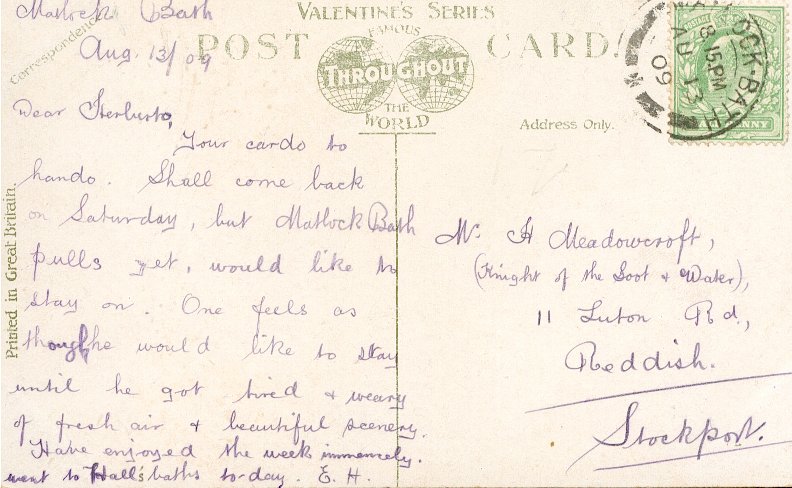 Matlock Bath
Aug. 13/09
Correspondence
VALENTINE'S SERIES
FAMOUS
THROUGHOUT
THE
WORLD
POST CARD.
Address Only.
MATLOCK-BATH
8 15 PM
AU 13
09
Printed in Great Britain
Dear Herberto,
Your cards to
hando. Shall come back
on Saturday, but Matlock Bath
pulls yet, would like to
stay on. One feels as
though he would like to stay
until he got tired & weary
of fresh air & beautiful scenery.
Have enjoyed the week immencely.
went to Hall's baths to-day. E. H.
Mr. H Meadowcroft,
(Knight of the Soot & Water),
11 Luton Rd.,
Reddish.
Stockport.